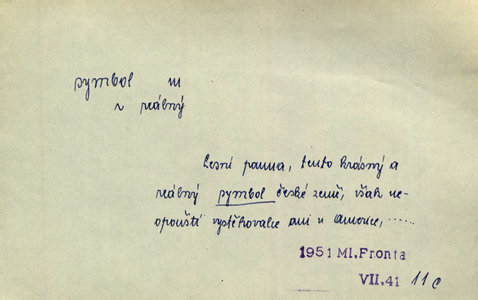 symbol m
v vábný
Lesní panna, tento krásný a
vábný symbol české země, však ne-
opouští vystěhovalce ani v Americe, ......
1951 Ml. Fronta
VII. 41 11c